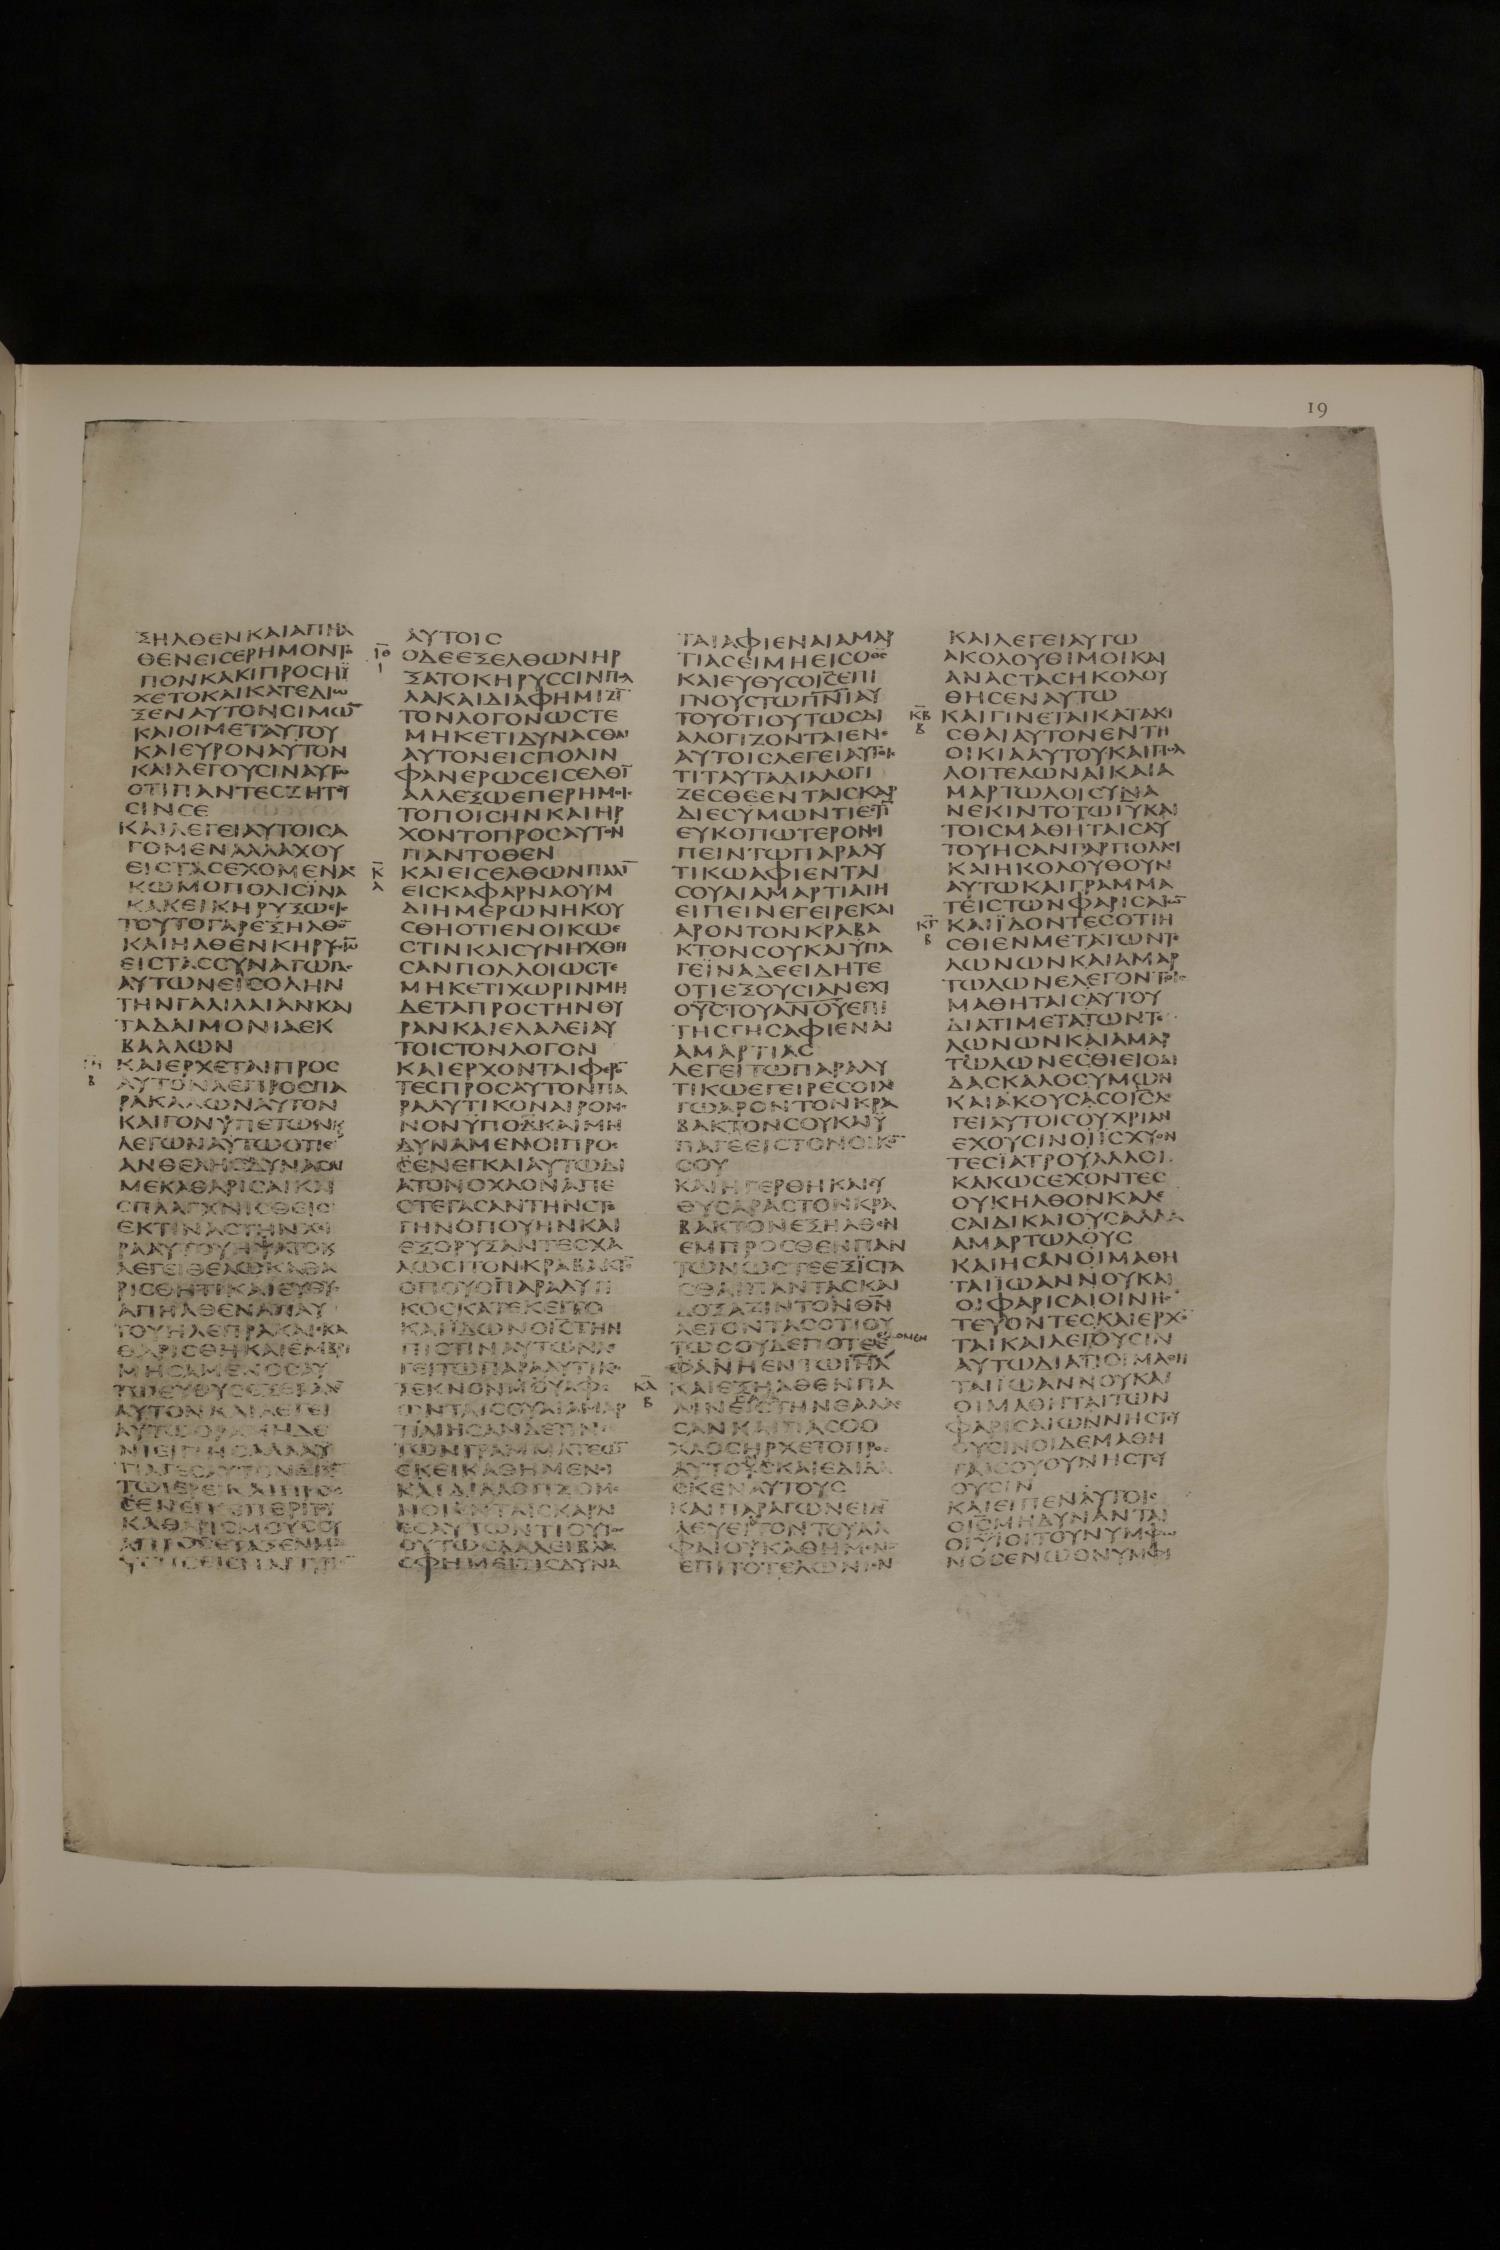 19
ΞΗΛΘΕΝΚΑΙΑΠΗΛ
ΘΕΝΕΙCΕΡΗΜΟΝΤΟ
ΠΟΝΚΑΚΙΠΡΟCΗΫ
ΧΕΤΟΚΑΙΚΑΤΕΔΙΩ
ΞΕΝΑΥΤΟΝCΙΜΩ̅
ΚΑΙΟΙΜΕΤΑΥΤΟΥ
ΚΑΙΕΥΡΟΝΑΥΤΟΝ
ΚΑΙΛΕΓΟΥCΙΝΑΥΤΩ
ΟΤΙΠΑΝΤΕCΖΗΤΟΥ
CΙΝCΕ
ΚΑΙΛΕΓΕΙΑΥΤΟΙCΑ
ΓΩΜΕΝΑΛΛΑΧΟΥ
ΕΙCΤΑCΕΧΟΜΕΝΑC
ΚΩΜΟΠΟΛΙCΪΝΑ
ΚΑΚΕΙΚΗΡΥΞΩ
ΤΟΥΤΟΓΑΡΕΞΗΛΘΟ̅
ΚΑΙΗΛΘΕΝΚΗΡΥCCΩ̅
ΕΙCΤΑCCΥΝΑΓΩΓΑC
ΑΥΤΩΝΕΙCΟΛΗΝ
ΤΗΝΓΑΛΙΛΑΙΑΝΚΑΙ
ΤΑΔΑΙΜΟΝΙΑΕΚ
ΒΑΛΛΩΝ
ΚΑΙΕΡΧΕΤΑΙΠΡΟC
ΑΥΤΟΝΛΕΠΡΟCΠΑ
ΡΑΚΑΛΩΝΑΥΤΟΝ
ΚΑΙΓΟΝΥΠΕΤΩΝΚΑΙ
ΛΕΓΩΝΑΥΤΩΟΤΙΕ
ΑΝΘΕΛΗCΔΥΝΑCΑΙ
ΜΕΚΑΘΑΡΙCΑΙΚΑΙ
CΠΛΑΓΧΝΙCΘΕΙC
ΕΚΤΙΝΑCΤΗΝΧΙ
ΡΑΑΥΤΟΥΗΨΑΤΟΚ
ΛΕΓΕΙΘΕΛΩΚΑΘΑ
ΡΙCΘΗΤΙΚΑΙΕΥΘΥC
ΑΠΗΛΘΕΝΑΠΑΥ
ΤΟΥΗΛΕΠΡΑΚΑΙΕΚΑ
ΘΑΡΙCΘΗΚΑΙΕΜΒΡΙ
ΜΗCΑΜΕΝΟCΑΥ
ΑΥΤΟΝΚΑΙΛΕΓΕΙ
ΑΥΤΟΙC
ΙΘ
Ι
ΟΔΕΕΞΕΛΘΩΝΗΡ
ΞΑΤΟΚΗΡΥCCΙΝΠΟΛ
ΛΑΚΑΙΔΙΑΦΗΜΙΖΙ̅
ΤΟΝΛΟΓΟΝΩCΤΕ
ΜΗΚΕΤΙΔΥΝΑCΘΑΙ
ΑΥΤΟΝΕΙCΠΟΛΙΝ
ΦΑΝΕΡΩCΕΙCΕΛΘΙ̅
ΑΛΛΕΞΩΕΠΕΡΗΜΟΙC
ΤΟΠΟΙCΗΝΚΑΙΗΡ
ΧΟΝΤΟΠΡΟCΑΥΤΟΝ
ΠΑΝΤΟΘΕΝ
Κ
Α
ΚΑΙΕΙCΕΛΘΩΝΠΑΛΙ̅
ΕΙCΚΑΦΑΡΝΑΟΥΜ
ΔΙΗΜΕΡΩΝΗΚΟΥ
CΘΗΟΤΙΕΝΟΙΚΩΕ
CΤΙΝΚΑΙCΥΝΗΧΘΗ
CΑΝΠΟΛΛΟΙΩCΤΕ
ΜΗΚΕΤΙΧΩΡΙΝΜΗ
ΔΕΤΑΠΡΟCΤΗΝΘΥ
ΡΑΝΚΑΙΕΛΑΛΕΙΑΥ
ΤΟΙCΤΟΝΛΟΓΟΝ
ΚΑΙΕΡΧΟΝΤΑΙΦΕΡΟ̅
ΤΕCΠΡΟCΑΥΤΟΝΠΑ
ΡΑΛΥΤΙΚΟΝΑΙΡΟΜΕ
ΝΟΝΫΠΟΔΚΑΙΜΗ
ΔΥΝΑΜΕΝΟΙΠΡΟC
ΕΝΕΓΚΑΙΑΥΤΩΔΙ
ΑΤΟΝΟΧΛΟΝΑΠΕ
CΤΕΓΑCΑΝΤΗΝCΤΕ
ΓΗΝΟΠΟΥΗΝΚΑΙ
ΕΞΟΡΥΞΑΝΤΕCΧΑ
ΛΩCΙΤΟΝΚΡΑΒΑΚΤΟ̅
ΟΠΟΥΟΠΑΡΑΛΥΤΙ
ΚΟCΚΑΤΕΚΕΙΤΟ
ΚΑΙΪΔΩΝΟΙ̅C̅ΤΗΝ
ΠΙCΤΙΝΑΥΤΩΝΛΕ
ΓΕΙΤΩΠΑΡΑΛΥΤΙΚΩ
ΤΕΚΝΟΝΜΟΥΑΦΕ
ΩΝΤΑΙCΟΥΑΙΑΜΑΡ
ΤΙΑΙΗCΑΝΔΕΤΙΝΕC
ΤΩΝΓΡΑΜΜΑΤΕΩ̅
ΕΚΕΙΚΑΘΗΜΕΝΟΙ
ΚΑΙΔΙΑΛΟΓΙΖΟΜΕ
ΝΟΙΕΝΤΑΙCΚΑΡΔΙ
ΟΥΤΩCΛΑΛΕΙΒΛΑ
CΦΗΜΕΙΤΙCΔΥΝΑ
ΤΑΙΑΦΙΕΝΑΙΑΜΑΡ
ΤΙΑCΕΙΜΗΕΙCΟΘC
ΚΑΙΕΥΘΥCΟΙ̅C̅ΕΠΙ
ΓΝΟΥCΤΩΠ̅Ν̅Ι̅ΑΥ
ΤΟΥΟΤΙΟΥΤΩCΔΙ
ΑΛΟΓΙΖΟΝΤΑΙΕΝΕ
ΑΥΤΟΙCΛΕΓΕΙΑΥΤΟΙC
ΤΙΤΑΥΤΑΔΙΑΛΟΓΙ
ΖΕCΘΕΕΝΤΑΙCΚΑΡ
ΔΙΕCΫΜΩΝΤΙΕCΤΙ̅
ΕΥΚΟΠΩΤΕΡΟΝΙ
ΠΕΙΝΤΩΠΑΡΑΛΥ
ΤΙΚΩΑΦΙΕΝΤΑΙ
CΟΥΑΙΑΜΑΡΤΙΑΙΗ
ΕΙΠΕΙΝΕΓΕΙΡΕΚΑΙ
ΑΡΟΝΤΟΝΚΡΑΒΑ
ΚΤΟΝCΟΥΚΑΙΫΠΑ
ΓΕΪΝΑΔΕΕΙΔΗΤΕ
ΟΤΙΕΞΟΥCΙΑΝΕΧΙ
ΟΥ̅C̅ΤΟΥΑ̅Ν̅Ο̅Υ̅ΕΠΙ
ΤΗCΓΗCΑΦΙΕΝΑΙ
ΑΜΑΡΤΙΑC
ΛΕΓΕΙΤΩΠΑΡΑΛΥ
ΤΙΚΩΕΓΕΙΡΕCΟΙΛΕ
ΓΩΑΡΟΝΤΟΝΚΡΑ
ΒΑΚΤΟΝCΟΥΚΑΙΫ
ΠΑΓΕΕΙCΤΟΝΟΙΚΟ̅
CΟΥ
ΚΑΙΗΓΕΡΘΗΚΑΙΕΥ
ΘΥCΑΡΑCΤΟΝΚΡΑ
ΒΑΚΤΟΝΕΞΗΛΘΕΝ
ΕΜΠΡΟCΘΕΝΠΑΝ
ΤΩΝΩCΤΕΕΞΪCΤΑ
CΘΑΙΠΑΝΤΑCΚΑΙ
ΔΟΞΑΖΙΝΤΟΝΘ̅Ν̅
ΛΕΓΟΝΤΑCΟΤΙΟΥ
ΤΩCΟΥΔΕΠΟΤΕΕ
ΦΑΝΗΕΝΤΩΙ̅Η̅Λ̅
ΚΑ
Β
ΚΑΙΕΞΗΛΘΕΝΠΑ
ΛΙΝΕΙCΤΗΝΘΑΛΑC
CΑΝΚΑΙΠΑCΟΟ
ΧΛΟCΗΡΧΕΤΟΠΡΟC
ΑΥΤΟΥCΚΑΙΕΔΙΔΑ
CΚΕΝΑΥΤΟΥC
ΚΑΙΠΑΡΑΓΩΝΕΙΔΕ̅
ΛΕΥΕΙΤΟΝΤΟΥΑΛ
ΦΑΙΟΥΚΑΘΗΜΕΝΟ̅
ΕΠΙΤΟΤΕΛΩΝΙΟΝ
ΚΑΙΛΕΓΕΙΑΥΤΩ
ΑΚΟΛΟΥΘΙΜΟΙΚΑΙ
ΑΝΑCΤΑCΗΚΟΛΟΥ
ΘΗCΕΝΑΥΤΩ
ΚΒ
Β
ΚΑΙΓΙΝΕΤΑΙΚΑΤΑΚΙ
CΘΑΙΑΥΤΟΝΕΝΤΗ
ΟΙΚΙΑΑΥΤΟΥΚΑΙΠΟΛ
ΛΟΙΤΕΛΩΝΑΙΚΑΙΑ
ΜΑΡΤΩΛΟΙCΥΝΑ
ΝΕΚΙΝΤΟΤΩΙ̅Υ̅ΚΑΙ
ΤΟΙCΜΑΘΗΤΑΙCΑΥ
ΤΟΥΗCΑΝΓΑΡΠΟΛΛΟΙ
ΚΑΙΗΚΟΛΟΥΘΟΥΝ
ΑΥΤΩΚΑΙΓΡΑΜΜΑ
ΤΕΙCΤΩΝΦΑΡΙCΑΙΩ̅
ΚΓ
Β
ΚΑΙΪΔΟΝΤΕCΟΤΙΗ
CΘΙΕΝΜΕΤΑΤΩΝΤΕ
ΛΩΝΩΝΚΑΙΑΜΑΡ
ΤΩΛΩΝΕΛΕΓΟΝΤΟΙC
ΜΑΘΗΤΑΙCΑΥΤΟΥ
ΔΙΑΤΙΜΕΤΑΤΩΝΤΕ
ΛΩΝΩΝΚΑΙΑΜΑΡ
ΤΩΛΩΝΕCΘΙΕΙΟΔΙ
ΔΑCΚΑΛΟCΥΜΩΝ
ΚΑΙΑΚΟΥCΑCΟΙ̅C̅ΛΕ
ΓΕΙΑΥΤΟΙCΟΥΧΡΙΑΝ
ΕΧΟΥCΙΝΟΙΙCΧΥΟΝ
ΤΕCΪΑΤΡΟΥΑΛΛΟΙ
ΚΑΚΩCΕΧΟΝΤΕC
ΟΥΚΗΛΘΟΝΚΑΛΕ
CΑΙΔΙΚΑΙΟΥCΑΛΛΑ
ΑΜΑΡΤΩΛΟΥC
ΚΑΙΗCΑΝΟΙΜΑΘΗ
ΤΑΙΪΩΑΝΝΟΥΚΑΙ
ΟΙΦΑΡΙCΑΙΟΙΝΗC
ΤΕΥΟΝΤΕCΚΑΙΕΡΧΟ̅
ΤΑΙΚΑΙΛΕΓΟΥCΙΝ
ΑΥΤΩΔΙΑΤΙΟΙΜΑΘΗ
ΤΑΙΪΩΑΝΝΟΥΚΑΙ
ΟΙΜΑΘΗΤΑΙΤΩΝ
ΦΑΡΙCΑΙΩΝΝΗCΤΕΥ
ΟΥCΙΝΟΙΔΕΜΑΘΗ
ΤΑΙCΟΥΟΥΝΗCΤΕΥ
ΟΥCΙΝ
ΚΑΙΕΙΠΕΝΑΥΤΟΙC
ΟΙ̅C̅ΜΗΔΥΝΑΝΤΑΙ
ΟΙΫΙΟΙΤΟΥΝΥΜΦΩ
ΝΟCΕΝΩΟΝΥΜΦΙ